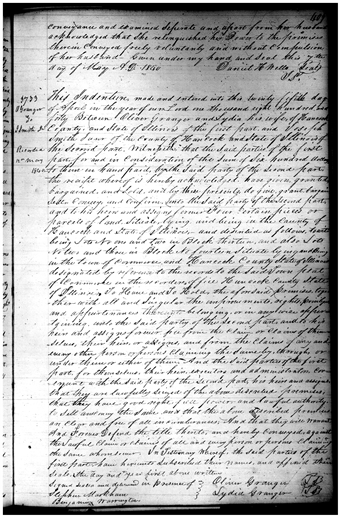 conveyance and examined seperate and apart from her husband
acknowledged that she relinquished her Dower to the premises
therein Conveyed freely voluntarily and without Compulsion
of her husband. Given under my hand and Seal this
day of May A.D. 1840 Daniel H. Wells Seal
J.P.
1733
O Granger
&
Smith J
Recorded
May
1840
This Indenture made and entered into the twenty fifth day
of April in the year of our Lord one thousand eight hundred and
forty Between Oliver Granger and Lydia his wife of Hancock
County and State of Illinois of the first part and
Smith of the County of Hancock and State of Illinois of
the second part, Witnesseth that the Said parties of the first
part for and in Consideration of the Sum of Six hundred dollars
to them in hand paid by the Said party of the Second part
the receipt whereof is hereby acknowledged have given granted
bargained and Sold, and by these presents do give, grant bargain
Sell Convey and Confirm, unto the Said party of the Second part,
and to his heirs and assigns forever certain pieces or
parcels of Land Situate lying and being in the County of
Hancock and State of Illinois and described as follows, to wit
being Lots No one and two in Block thirteen, and also Lot
No two and three in Block
in the Town of Commerce, and Hancock County State of Illinois
designated by reference to the records to the Said Town plat
of Commerce in the recorders office Hancock County State
of Illinois To Have and To Hold the aforesaid premises, to
gether with all and Singular the improvements, rights
and appurtenances thereunto belonging, or in anywise apper
taining, unto the Said party of the Second part, and to his
heirs and assigns forever free from the Claim or Claims of them
selves, their heirs, or assigns, and from the Claim of any and
every other person or persons Claiming the Same by, through, or
under them or either of them. And the Said parties of the first
part for themselves, their heirs, executors and administrators Cov
enant, with the Said party of the Second part, his heirs and assigns
that they are lawfully Seized of the aforementioned premises,
that they have good right, full power, and lawful authority
to Sell and convey the Same, and that the above premises
are Clear and free of all incumbrances. And that they will warrant
and Forever Defend the title thereto, and hereby Conveyed, against
the lawful Claim or claims of all and every person or persons Claiming
the Same whomsoever. In Testimony Whereof, the Said parties of the
first part have hereunto Subscribed their Names, and affixed their
Seals, the day and year first above written.
Signed sealed and delivered in presence of Oliver Granger
Stephen Markham Lydia Granger
Benjamin Warrington